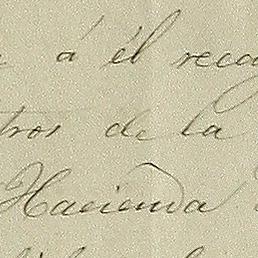 á él reca
tros de la
Hacienda